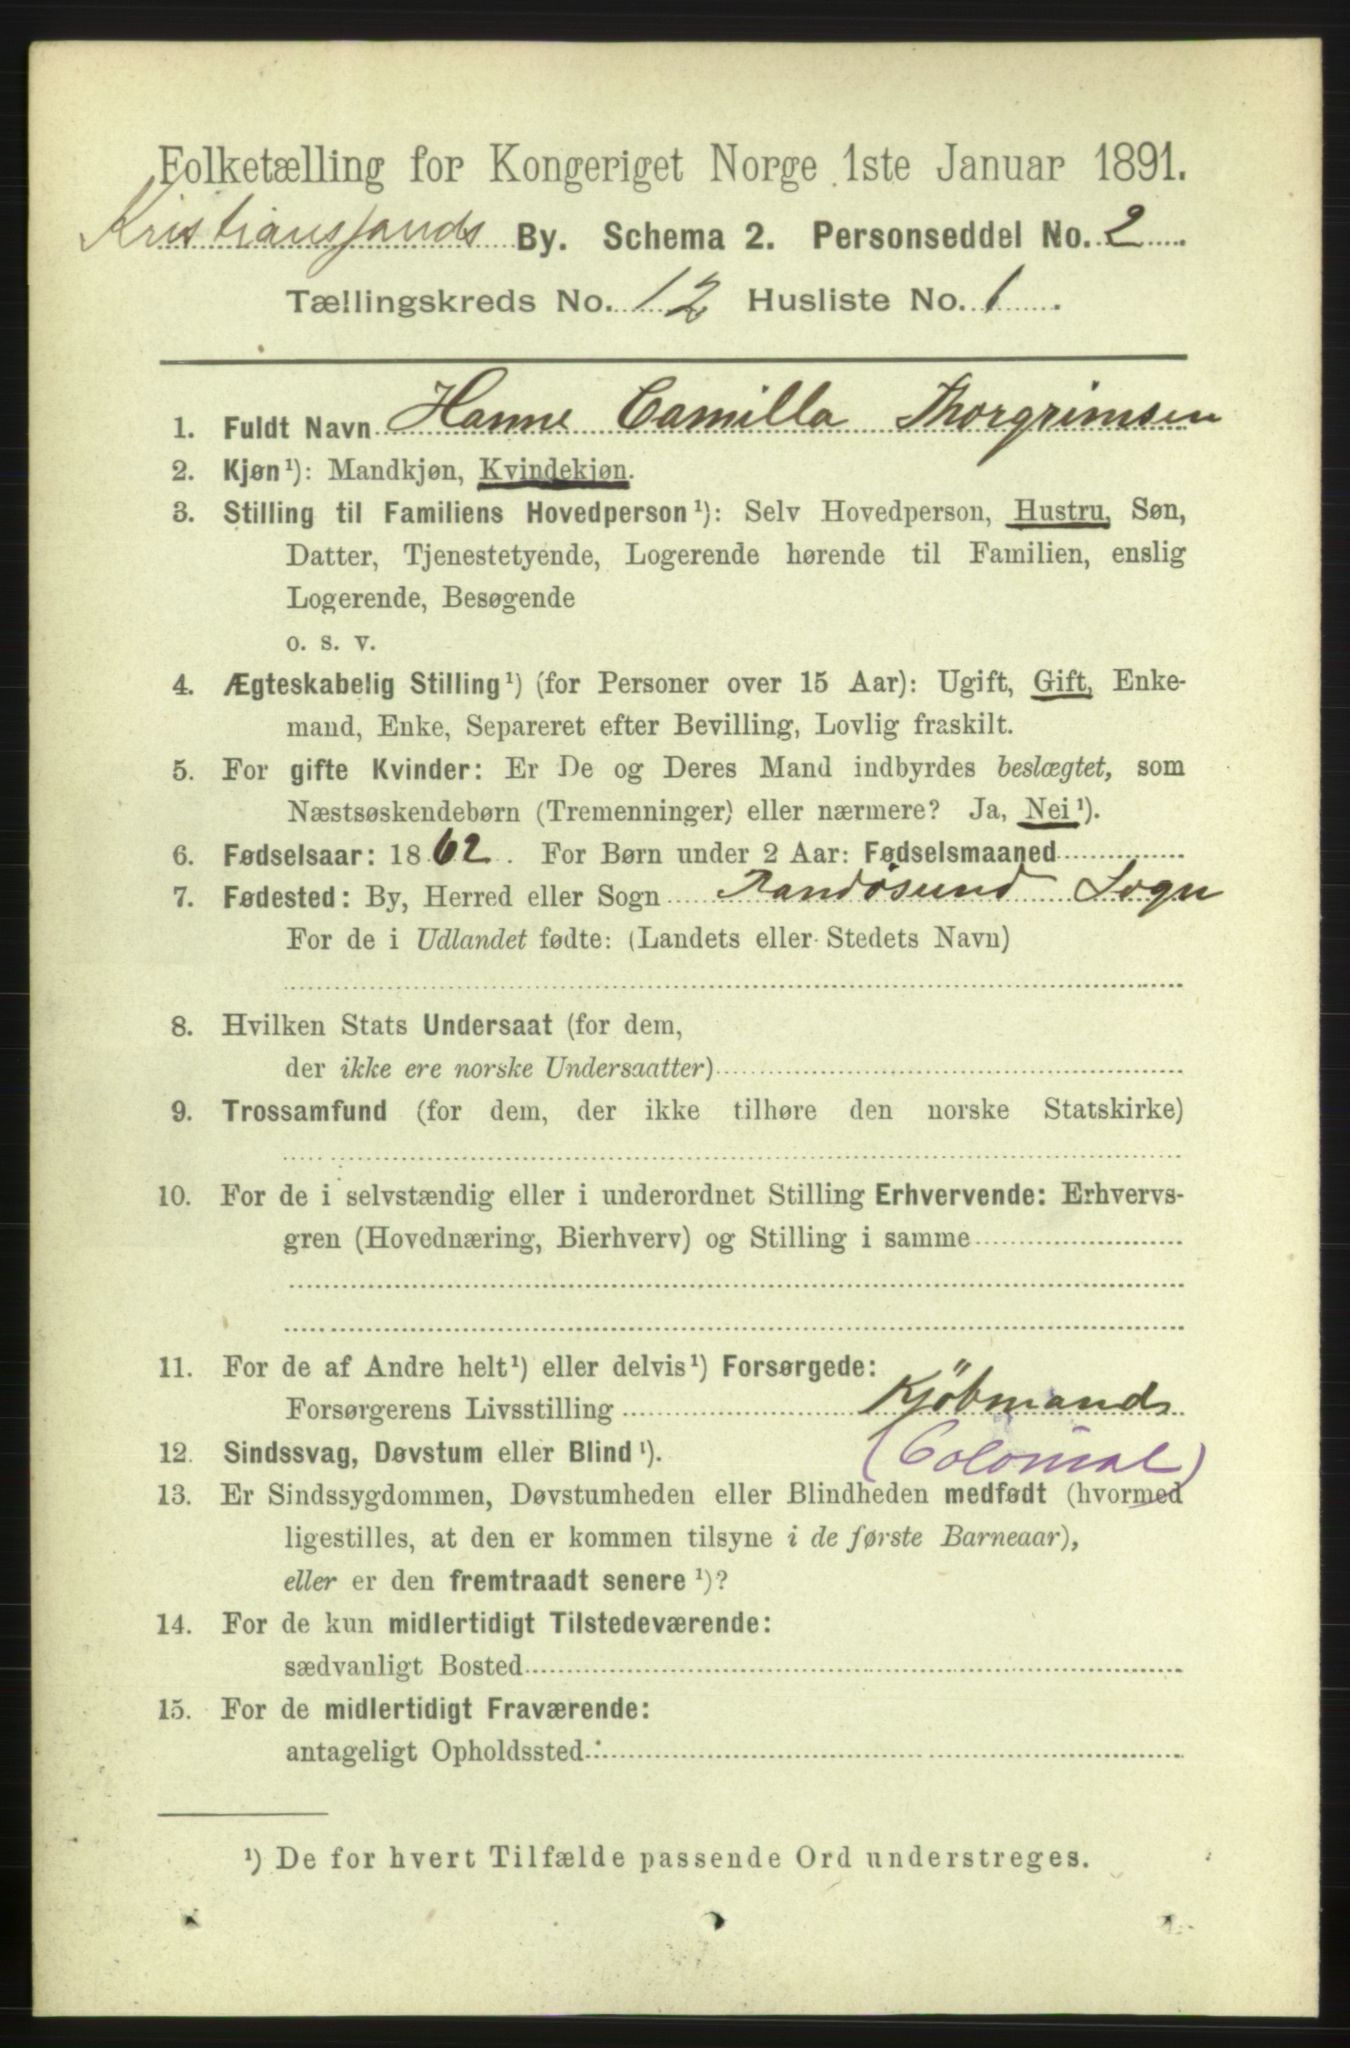 Folketælling for Kongeriget Norge 1ste Januar 1891.
Kristianssands By. Schema 2. Personseddel No. 2
Tællingskreds No. 12 Husliste No. 1
1. Fuldt Navn Hanne Camilla Thorgrimsen
2. Kjøn¹): Mandkjøn, Kvindekjøn.
3. Stilling til Familiens Hovedperson¹): Selv Hovedperson, Hustru, Søn,
Datter, Tjenestetyende, Logerende hørende til Familien, enslig
Logerende, Besøgende
o. s. v.
4. Ægteskabelig Stilling¹) (for Personer over 15 Aar): Ugift, Gift, Enke-
mand, Enke, Separeret efter Bevilling, Lovlig fraskilt.
5. For gifte Kvinder: Er De og Deres Mand indbyrdes beslægtet, som
Næstsøskendebørn (Tremenninger) eller nærmere? Ja, Nei¹).
6. Fødselsaar: 1862. For Børn under 2 Aar: Fødselsmaaned
7. Fødested: By, Herred eller Sogn Randøsund Sogn
For de i Udlandet fødte: (Landets eller Stedets Navn)
8. Hvilken Stats Undersaat (for dem,
der ikke ere norske Undersaatter)
9. Trossamfund (for dem, der ikke tilhøre den norske Statskirke)
10. For de i selvstændig eller i underordnet Stilling Erhvervende: Erhvervs-
gren (Hovednæring, Bierhverv) og Stilling i samme
11. For de af Andre helt¹) eller delvis¹) Forsørgede:
Forsørgerens Livsstilling Kjöbmands
(Colonial)
12. Sindssvag, Døvstum eller Blind¹).
13. Er Sindssygdommen, Døvstumheden eller Blindheden medfødt (hvormed
ligestilles, at den er kommen tilsyne i de første Barneaar),
eller er den fremtraadt senere¹)?
14. For de kun midlertidigt Tilstedeværende:
sædvanligt Bosted
15. For de midlertidigt Fraværende:
antageligt Opholdssted
¹) De for hvert Tilfælde passende Ord understreges.